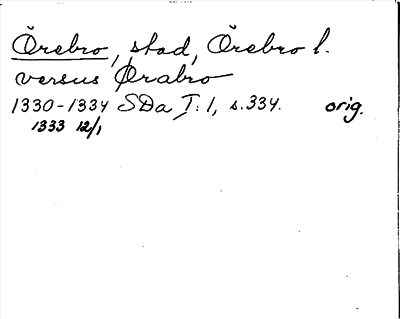 Örebro, stad, Örebro l.
versus Ørabro
1330-1334 SDa I:1, s.334. orig.
1333 12/1